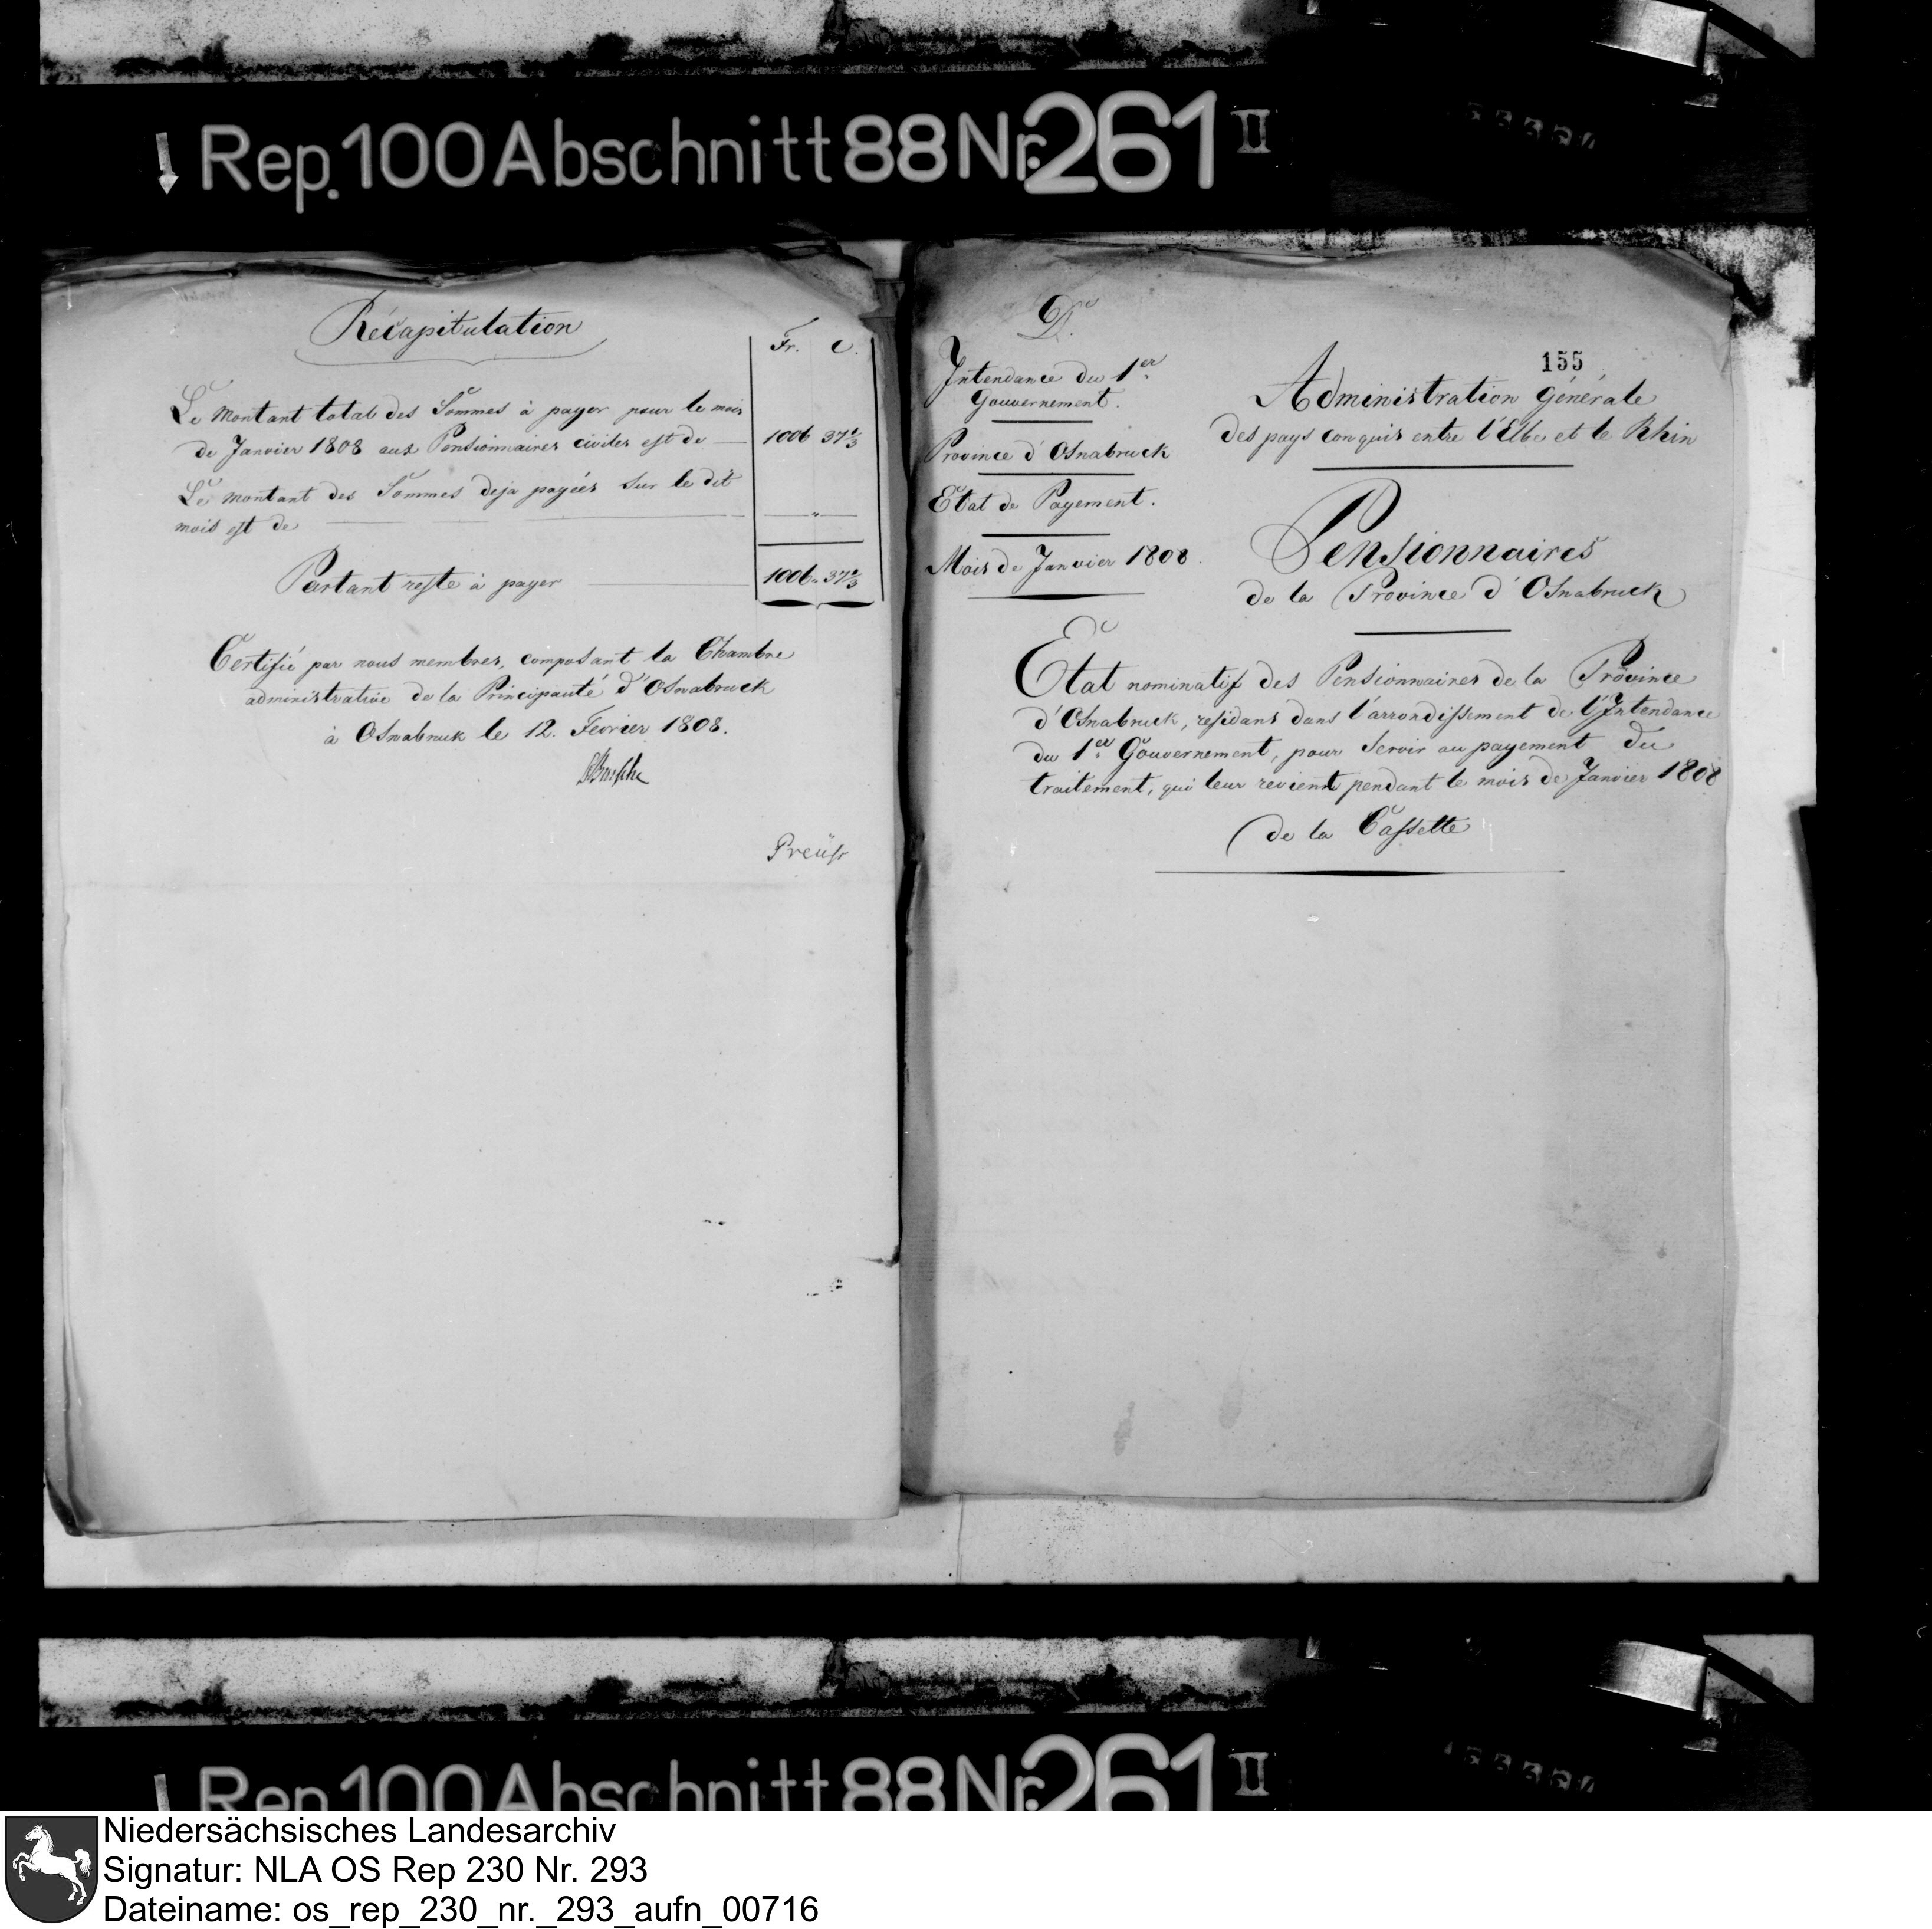 Rep. 100 Abschnitt 88 Nr. 261 II
Récapitulation
Fr. C.
Le montant total des Sommes à payer pour le mois
de Janvier 1808 aux Pensionnaires civiles est de 1006 37 2/3
Le montant des Sommes deja payées sur le dit
mois est de "
Partant reste à payer 1006 " 37 2/3
Certifié par nous membres, composant la Chambre
administrative de la Principauté d'Osnabruck
à Osnabruck le 12. Fevrier 1808.
Preüss
D.
Intendance du 1er
Gouvernement.
Province d'Osnabruck
Etat de Payement.
Mois de Janvier 1808.
155
Administration Générale
des pays conquis entre l'Elbe et le Rhin
Pensionnaires
de la Province d'Osnabruck
Etat nominatif des Pensionnaires de la Province
d'Osnabruck, residans dans l'arrondissement de l'Intendance
du 1er Gouvernement, pour servir au payement du
traitement, qui leur revient pendant le mois de Janvier 1808
de la Cassette
Rep. 100 Abschnitt 88 Nr. 261 II
Niedersächsisches Landesarchiv
Signatur: NLA OS Rep 230 Nr. 293
Dateiname: os_rep_230_nr._293_aufn_00716